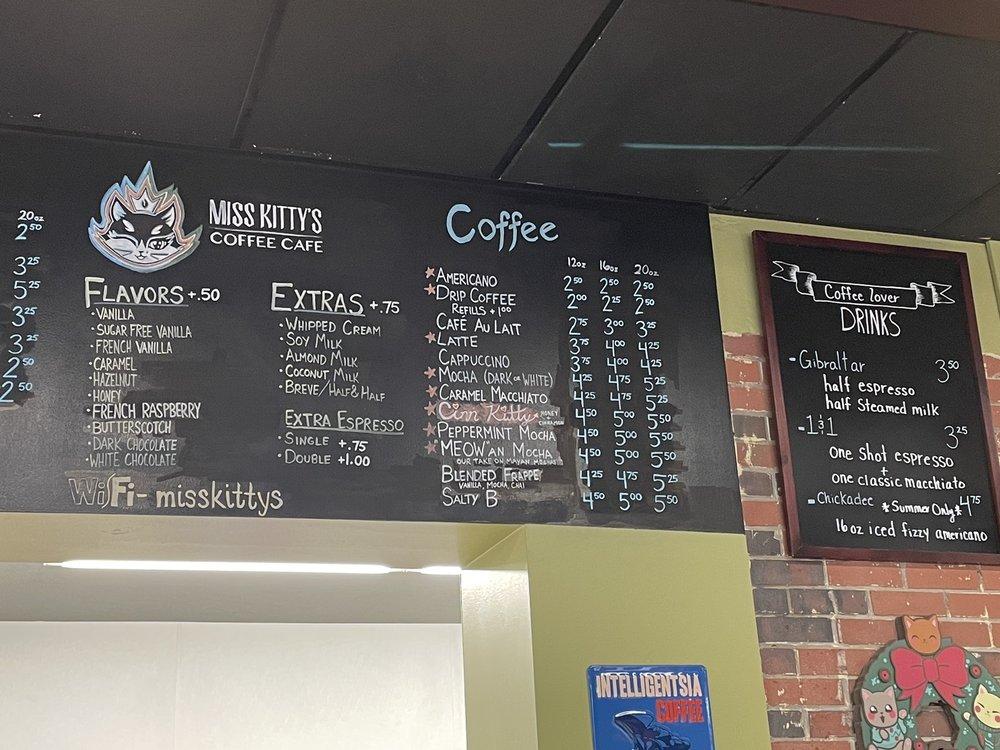 20oz
2.50
3.25
5.25
3.25
3.25
2.50
2.50
MISS KITTY'S
COFFEE CAFE
FLAVORS +.50
• VANILLA
• SUGAR FREE VANILLA
• FRENCH VANILLA
• CARAMEL
• HAZELNUT
• HONEY
• FRENCH RASPBERRY
• BUTTERSCOTCH
• DARK CHOCOLATE
• WHITE CHOCOLATE
WiFi - misskittys
EXTRAS +.75
• WHIPPED CREAM
• SOY MILK
• ALMOND MILK
• COCONUT MILK
• BREVE/HALF & HALF
EXTRA ESPRESSO
• SINGLE +.75
• DOUBLE +1.00
Coffee
12oz 16oz 20oz
AMERICANO 2.50 2.50 2.50
DRIP COFFEE 2.00 2.25 2.50
REFILLS +1.00
CAFÉ AU LAIT 2.75 3.00 3.25
LATTE 3.75 4.00 4.25
CAPPUCCINO 3.75 4.00 4.25
MOCHA (DARK OR WHITE) 4.25 4.75 5.25
CARAMEL MACCHIATO 4.25 4.75 5.25
Cinn Kitty HONEY CINNAMON 4.50 5.00 5.50
PEPPERMINT MOCHA 4.50 5.00 5.50
MEOW'AN MOCHA 4.50 5.00 5.50
OUR TAKE ON MAYAN MOCHAS
BLENDED FRAPPE 4.25 4.75 5.25
VANILLA, MOCHA, CHAI
SALTY B 4.50 5.00 5.50
Coffee lover
DRINKS
- Gibraltar 3.50
half espresso
half Steamed milk
- 1 & 1 3.25
one shot espresso
+
one classic macchiato
- Chickadee *Summer Only* 4.75
16oz iced fizzy americano
INTELLIGENTSIA
COFFEE